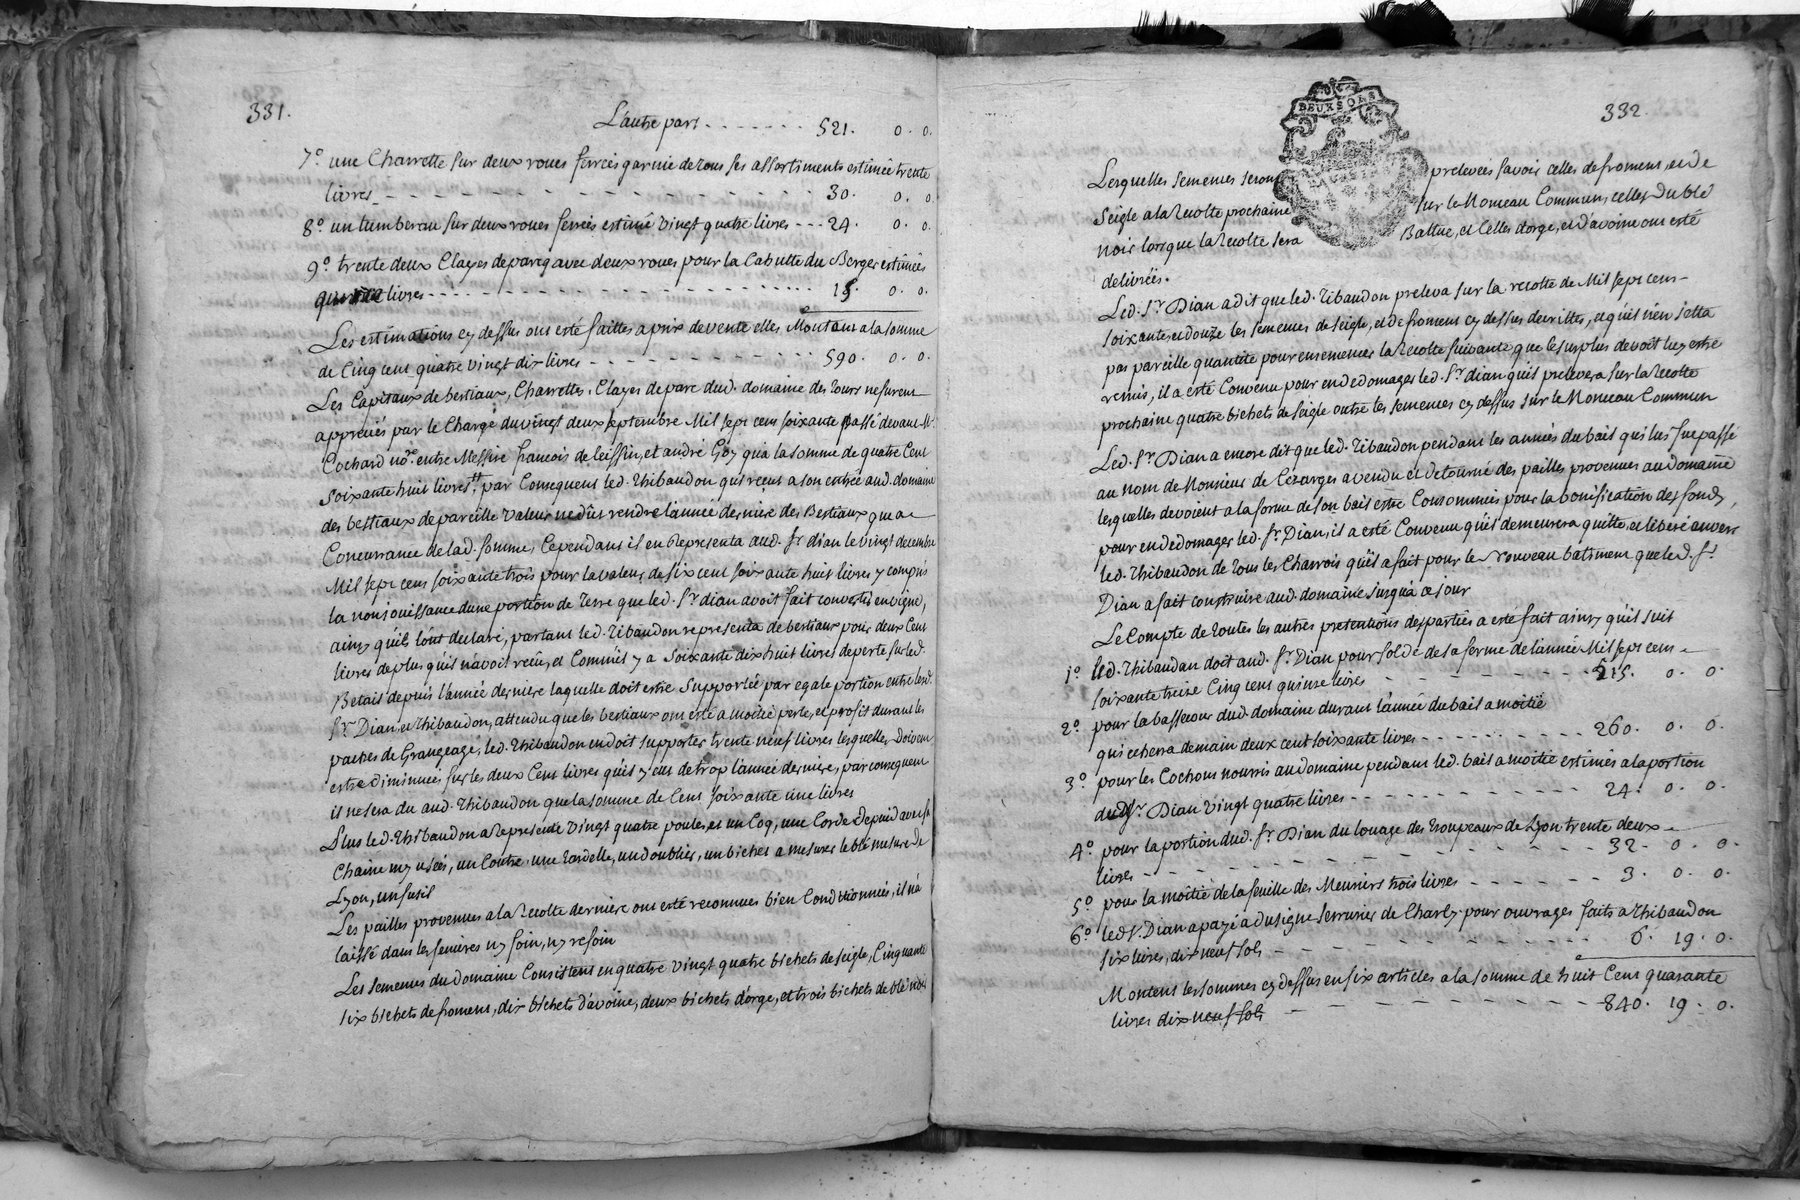 331.
L'autre part - - - - - - - 521. 0. 0.
7.° une Charrette sur deux roues ferrées garnie de tous ses assortiments estimée trente
livres - - - - - - - - - - 30. 0. 0.
8.° un tumbereau sur deux roues ferrées estimé vingt quatre livres - - - 24. 0. 0.
9.° trente deux Clayes de parcq avec deux roues pour la Cabutte du Berger estimées
livres - - - - - - - - - - 15. 0. 0.
Les estimations cy dessus ont esté faittes a prix de vente elles Montant a la somme
de Cinq cent quatre vingt dix livres - - - - - - - - 590. 0. 0.
Les Capitaux de bestiaux, Charrettes, Clayes de parc dud. domaine des tours ne furent
appreciés par le Chargé du vingt deux septembre Mil sept cent soixante passé devant M.e
Cochard no.re entre Messire francois de leissin, et andré Goy qu'a la somme de quatre Cent
soixante huit livres par Consequent led. Thibaudon qui reçut a son entrée aud. domaine
des bestiaux de pareille valeur ne dût rendre l'année derniere des Bestiaux que a
Concurrance de lad. somme, Cependant il en representa aud. s.r dian le vingt decembre
Mil sept cent soixante trois pour la valeur de six cent soixante huit livres y compris
la nonjouissance d'une portion de Terre que led. s.r dian avoit fait convertir en vigne,
ainsy qu'ils l'ont declaré, partant led. Tibaudon representa de bestiaux pour deux Cent
livres de plus qu'il n'avoit reçû, et Comm'il y a soixante dix huit livres de perte sur led.
Betail depuis l'année derniere laquelle doit estre Supportée par egale portion entre lesd.
s.r Dian, et Thibaudon, attendu que les bestiaux ont esté a moitié perte, et profit durant les
pactes de Grangeage, led. Thibaudon en doit supporter trente neuf livres lesquelles doivent
estre diminuées sur les deux Cent livres qu'il y eut de trop l'année derniere, par consequent
il ne sera du aud. Thibaudon que la somme de Cent soixante une livres
Plus led. Thibaudon a Representé vingt quatre poules et un Coq, une Corde de puid avec sa
Chaine my usées, un Coutre, une un doublier, un bichet a mesurer le blé mesure de
Lyon, un fusil
Les pailles provenues a la recolte derniere ont esté reconnues bien Conditionnées, il n'a
laissé dans les fenieres ny foin, ny refoin
Les semences du domaine Consistent en quatre vingt quatre bichets de seigle, Cinquante
six bichets de froment, dix bichets d'avoine, deux bichets d'orge, et trois bichets de blé noir
332.
DEUX SOLS
Lesquelles semences seront prelevées savoir celles de froment, et de
Seigle a la recolte prochaine sur le Monceau Commun, celles du blé
noir lorsque la recolte sera Battue, et Celles d'orge, et d'avoine ont esté
delivrées.
Led. s.r Dian a dit que led. Tibaudon preleva sur la recolte de Mil sept cent
soixante et douze les semences de seigle, et de froment cy dessus decrittes, et qu'il n'en jetta
pas pareille quantité pour ensemencer la recolte suivante que le surplus devoit luy estre
remis, il a esté Convenu pour en dedomager led. s.r dian qu'il prelevera sur la recolte
prochaine quatre bichets de seigle outre les semences cy dessus sur le Monceau Commun
Led. s.r Dian a encore dit que led. Tibaudon pendant les années du bail qui lui fut passé
au nom de Monsieur de Cezarges a vendu et detourné des pailles provenues au domaine
lesquelles devoient a la forme de son bail estre Consommées pour la bonification des fonds,
pour en dedomager led. s.r Dian, il a esté Convenu qu'il demeurera quitte, et liberé envers
led. Thibaudon de tous les Charrois qu'il a fait pour le nouveau batiment que led. s.r
Dian a fait construire aud. domaine jusqu'à ce jour
Le Compte de toutes les autres pretentions des parties a esté fait ainsy qu'il suit
1.° led. Thibaudan doit aud. s.r Dian pour solde de sa ferme de l'année Mil sept cent
soixante treize Cinq cent quinze livres - - - - - - 515. 0. 0.
2.° pour la bassecour dud. domaine durant l'année du bail a moitié
qui echerra demain deux cent soixante livres - - - - - - - 260. 0. 0.
3.° pour les Cochons nourris au domaine pendant led. bail a moitié estimés a la portion
dud. s.r Dian vingt quatre livres - - - - - - - - 24. 0. 0.
4.° pour la portion dud. s.r Dian du louage des troupeaux de Lyon trente deux
livres - - - - - - - - - - 32. 0. 0.
5.° pour la moitié de la feuille des Meuriers trois livres - - - - - 3. 0. 0.
6.° led. s.r Dian a payé a dusigne serrurier de Charly pour ouvrages faits a Thibaudon
six livres, dix neuf sols - - - - - - - - 6. 19. 0.
Montent les sommes cy dessus en six articles a la somme de huit Cent quarante
livres dix neuf sols - - - - - - - - 840. 19. 0.